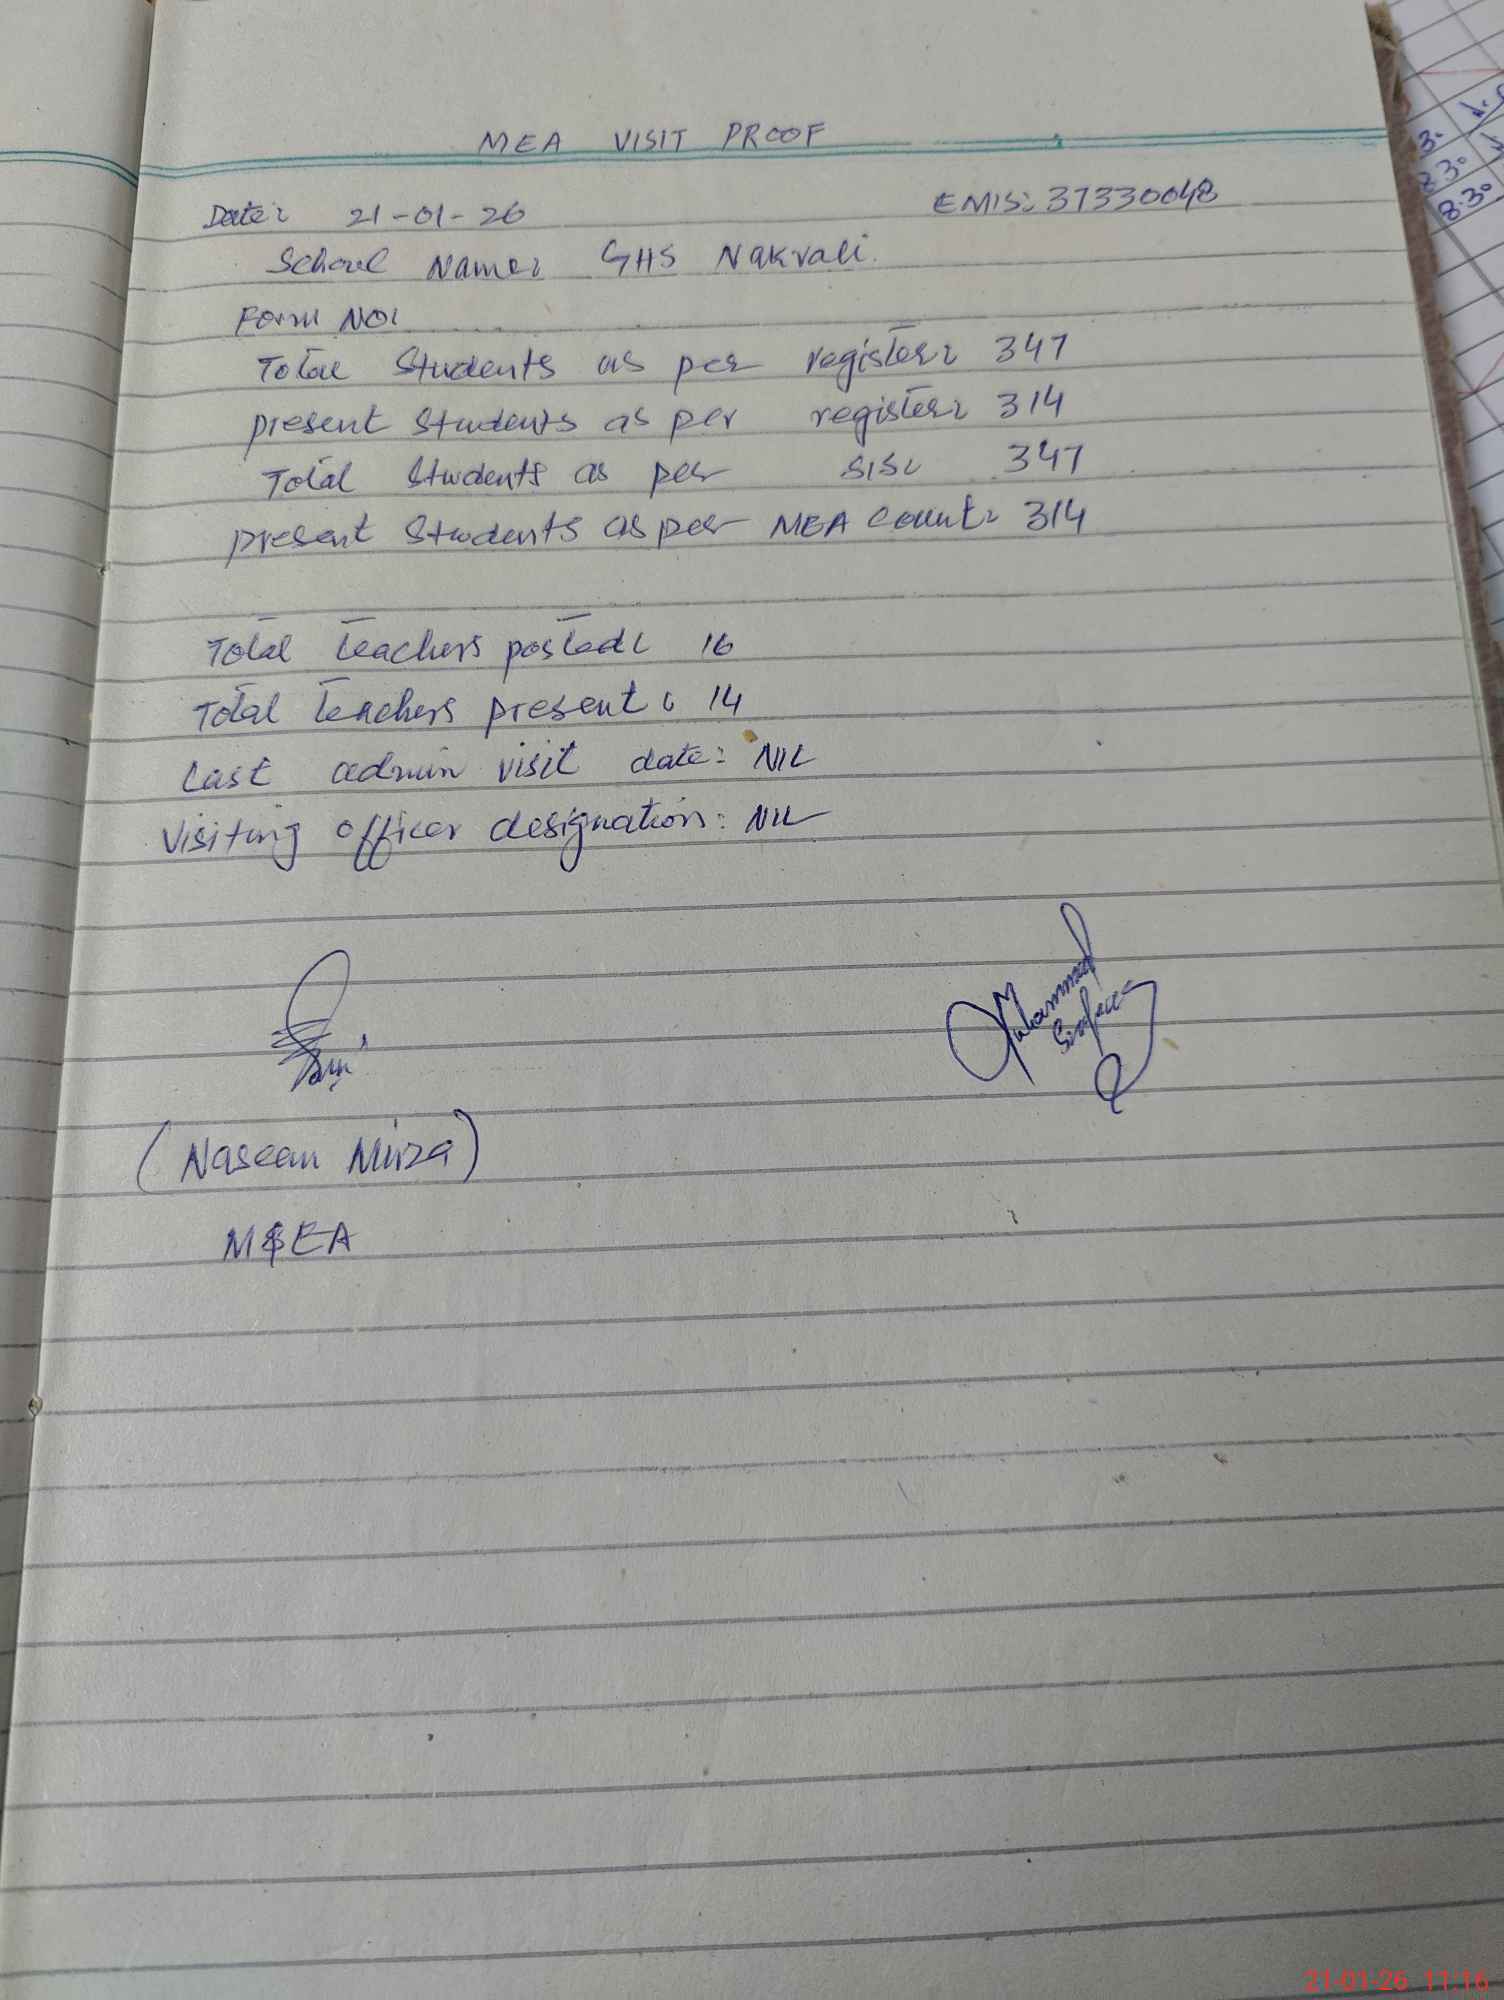 MEA VISIT PROOF
Date: 21-01-26 EMIS: 37330048
School Name: GHS Nakvali
Form No:
Total Students as per register: 347
present Students as per register: 314
Total Students as per SIS: 347
present Students as per MEA count: 314
Total teachers posted: 16
Total teachers present: 14
Last admin visit date: NIL
Visiting officer designation: NIL
Muhammad
(Naseem Mirza)
MEA
21-01-26 11:16
3.
8.30
8.30